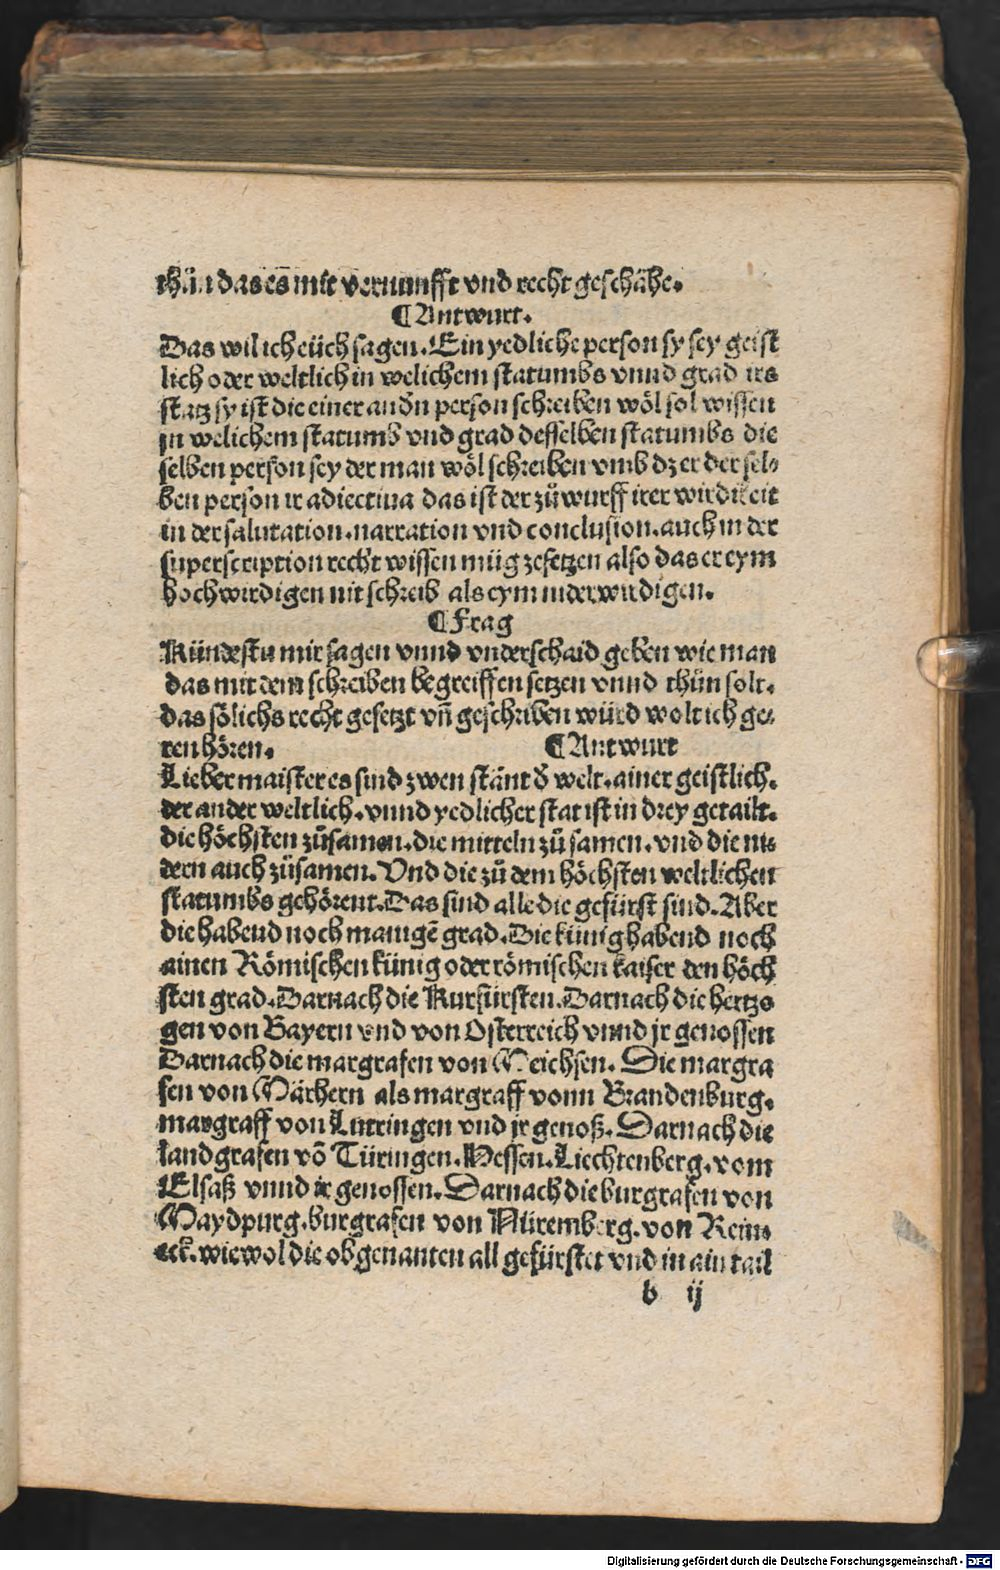 thůn das es mit vernunfft vnd recht geschähe.
¶ Antwurt.
Das wil ich eüch sagen. Ein yedliche person sy sey geist
lich oder weltlich in welichem statumbs vnnd grad irs
statz sy ist die einer andn̄ person schreiben wöl sol wissen
in welichem statumb vnd grad desselben statumbs die
selben person sey der man wöl schreiben vmb dz er der sel-
ben person ir adiectiua das ist der zůwurff irer wirdikeit
in der salutation. narration vnd conclusion. auch in der
superscription recht wissen müg zesetzen also das er eym
hochwirdigen nit schreib als eym niderwirdigen.
¶ Frag
Kündestu mir sagen vnnd vnderschaid geben wie man
das mit dem schreiben begreiffen setzen vnnd thün solt.
das sölichs recht gesetzt vn̄ geschriben würd wolt ich ge-
ren hören. ¶ Antwurt
Lieber maister es sind zwen stänt d' welt. ainer geistlich.
der ander weltlich. vnnd yedlicher stat ist in drey getailt.
die höchsten zůsamen. die mitteln zů samen. vnd die ni-
dern auch zůsamen. Vnd die zů dem höchsten weltlichen
statumbs gehörent. Das sind alle die gefürst sind. Aber
die habend noch manigē grad. Die künig habend noch
ainen Römischen künig oder römischen kaiser den höch
sten grad. Darnach die Kurfürsten. Darnach die hertzo
gen von Bayern vnd von Osterreich vnnd jr genossen
Darnach die margrafen von Meichsen. Die margra
fen von Märhern als margraff vonn Brandenburg.
margraff von Lutringen vnd jr genoß. Darnach die
landgrafen vō Türingen. Hessen. Liechtenberg. vom
Elsaß vnnd ir genossen. Darnach die burgrafen von
Maydpurg. burgrafen von Nüremberg. von Rein-
eck. wiewol die obgenanten all gefürstet vnd in ain tail
b ij
Digitalisierung gefördert durch die Deutsche Forschungsgemeinschaft - DFG